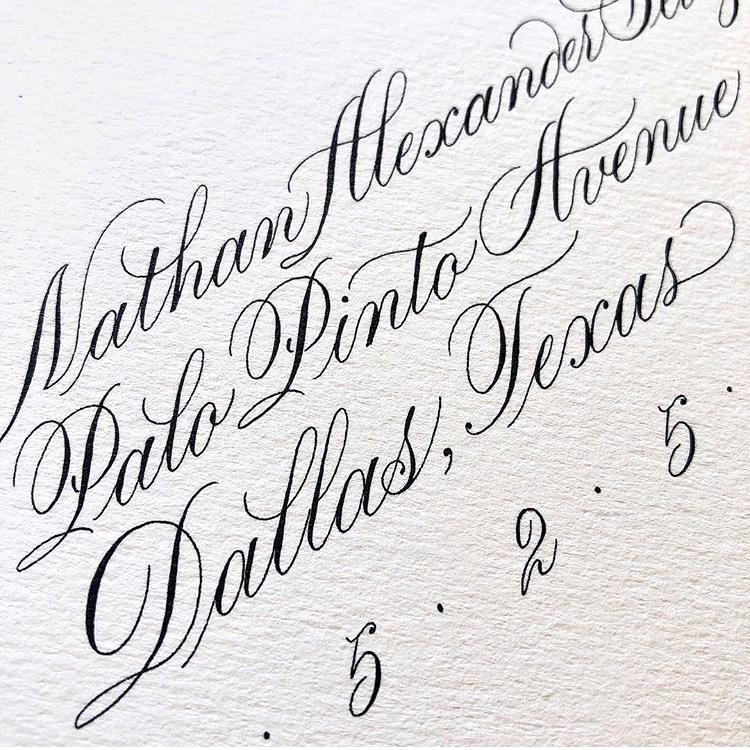 Nathan Alexander
Palo Pinto Avenue
Dallas, Texas
· 5 · 2 · 5 ·